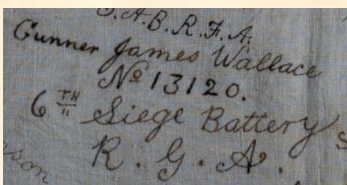 S.A.B.R.F.A.
Gunner James Wallace
Nº 13120.
6TH Siege Battery
R. G. A.